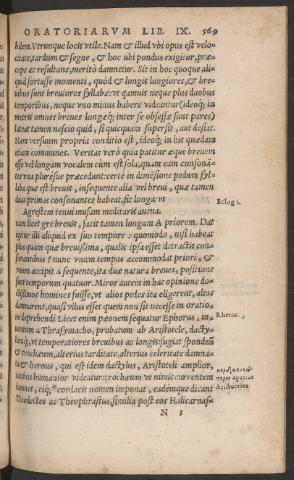 ORATORIARVM LIB. IX. 569
bilem. Vtrunque locis vtile. Nam & illud vbi opus est velo-
citate, tardum & segne, & hoc vbi pondus exigitur, præ-
ceps ac resultans, meritò damnetur. Sit in hoc quoque ali-
quid fortasse momenti, quòd & longis longiores, & bre-
uibus sunt breuiores syllabæ: vt quamuis neque plus duobus
temporibus, neque vno minus habere videantur (ideoq; in
metris omnes breues longæq; inter se obsessæ sunt pares)
lateat tamen nescio quid, si quicquam supersit, aut desiat.
Nam versuum propria conditio est, ideoq; in his quædam
etiam communes. Veritas verò quia patitur æque breuem
esse vel longam vocalem cùm est sola, quàm eam consonã-
tes vna pluresue præcedunt: certè in dimensione pedum syl-
laba quæ est breuis, insequente alia vel breui, quæ tamen
duas primas consonantes habeat, fit longa: vt
Eclog 1.
Agrestem tenui musam meditaris auena.
nam licet gre breuis, facit tamen longam A priorem. Dat
igitur illi aliquid ex suo tempore: quomodo, nisi habeat
plus quàm quæ breuissima, qualis ipsa esset detractis con-
sonantibus? nunc vnum tempus accommodat priori, &
vnum accipit à sequente, ita duæ natura breues, positione
sunt temporum quatuor. Miror autem in hac opinione do-
ctissimos homines fuisse, vt alios pedes ita eligerent, alios
damnarent, quasi vllus esset quem non sit necesse in oratio-
ne deprehendi. Licet enim pæonem sequatur Ephorus, in-
Rhetor. 3
uentum à Thrasymacho, probatum ab Aristotele, dacty-
lumq; vt temperatiores breuibus ac longis: fugiat spondeũ
& trochæum, alterius tarditate, alterius celeritate damna-
ta: & herous, qui est idem dactylus, Aristoteli amplior,
iambus humanior videatur: trochæum vt nimis currentem
damnet, eiq; cordacis nomen imponat, eadémque dicant
Aristoteles
Theodectes ac Theophrastus, similia post eos Halicarnass
N 3